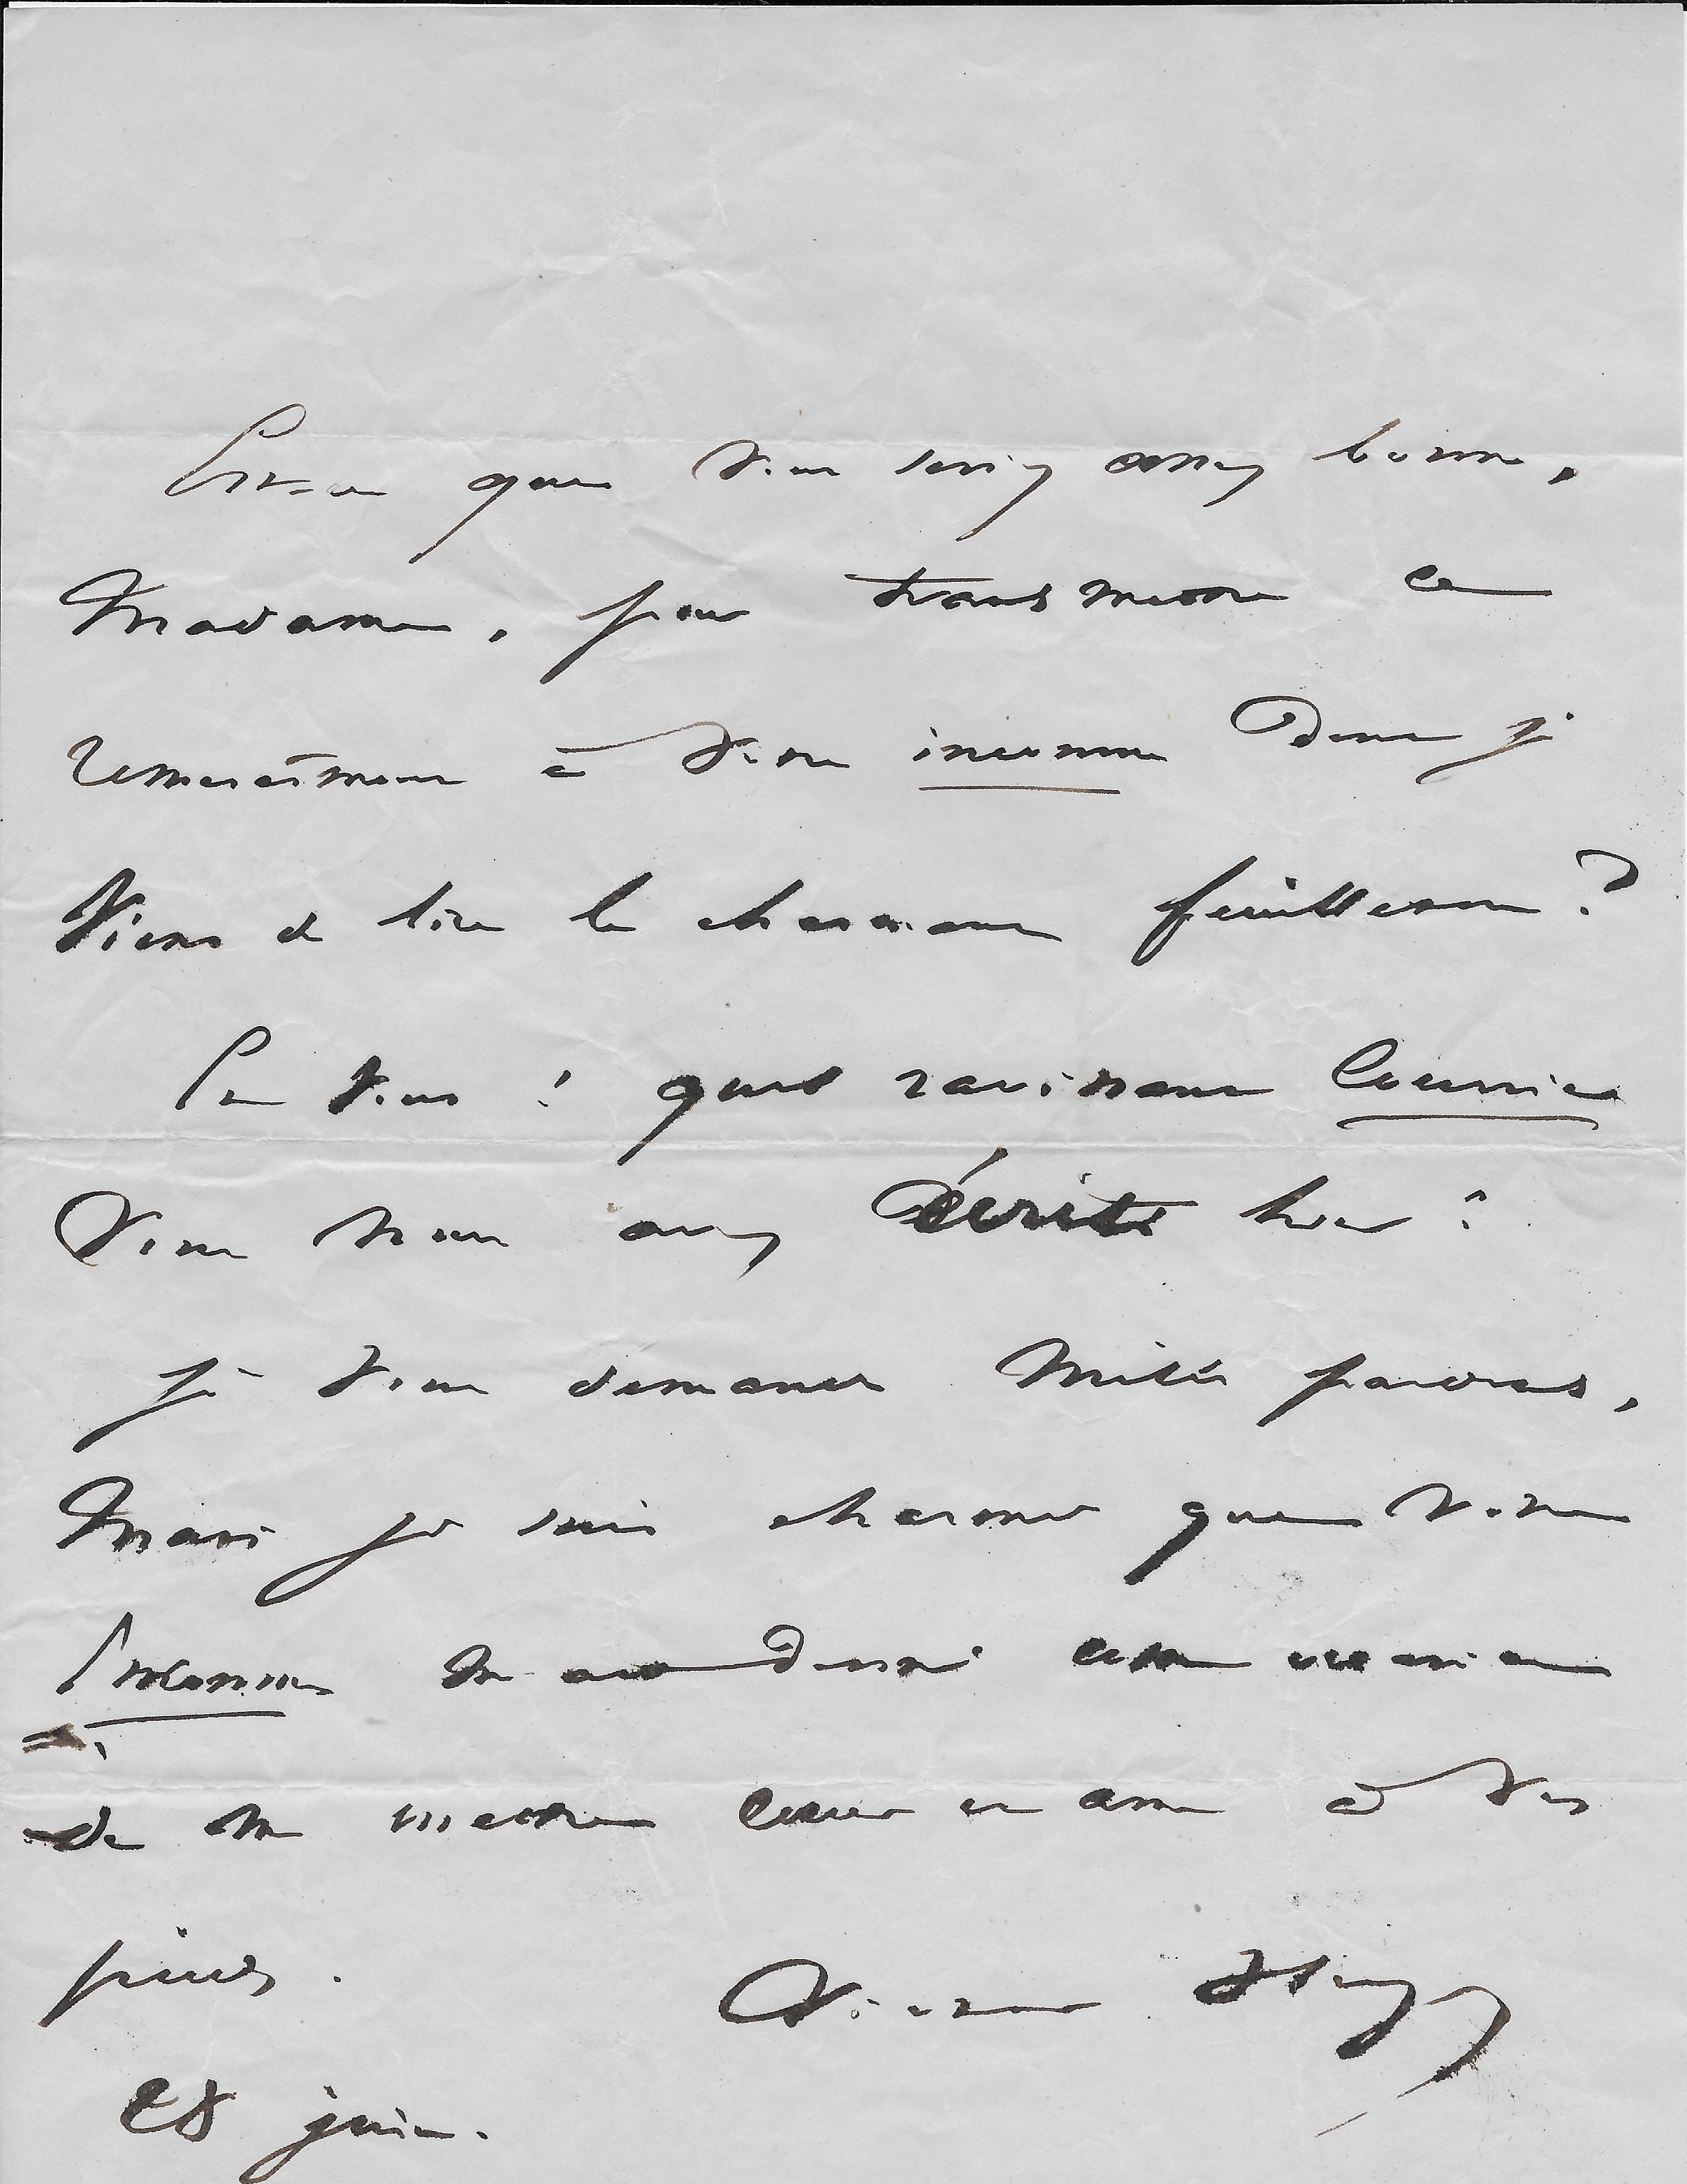 Est-ce que vous seriez assez bonne,
Madame, pour transmettre ce
remerciement à votre inconnu dont je
viens de lire le charmant feuilleton ?
Et vous ! quel ravissant Courrier
vous nous avez écrit hier !
je vous demande mille pardons,
Mais je suis charmé que votre
inconnu m'ait donné cette occasion
de me mettre cœur et âme à vos
pieds.
Victor Hugo
28 juin.